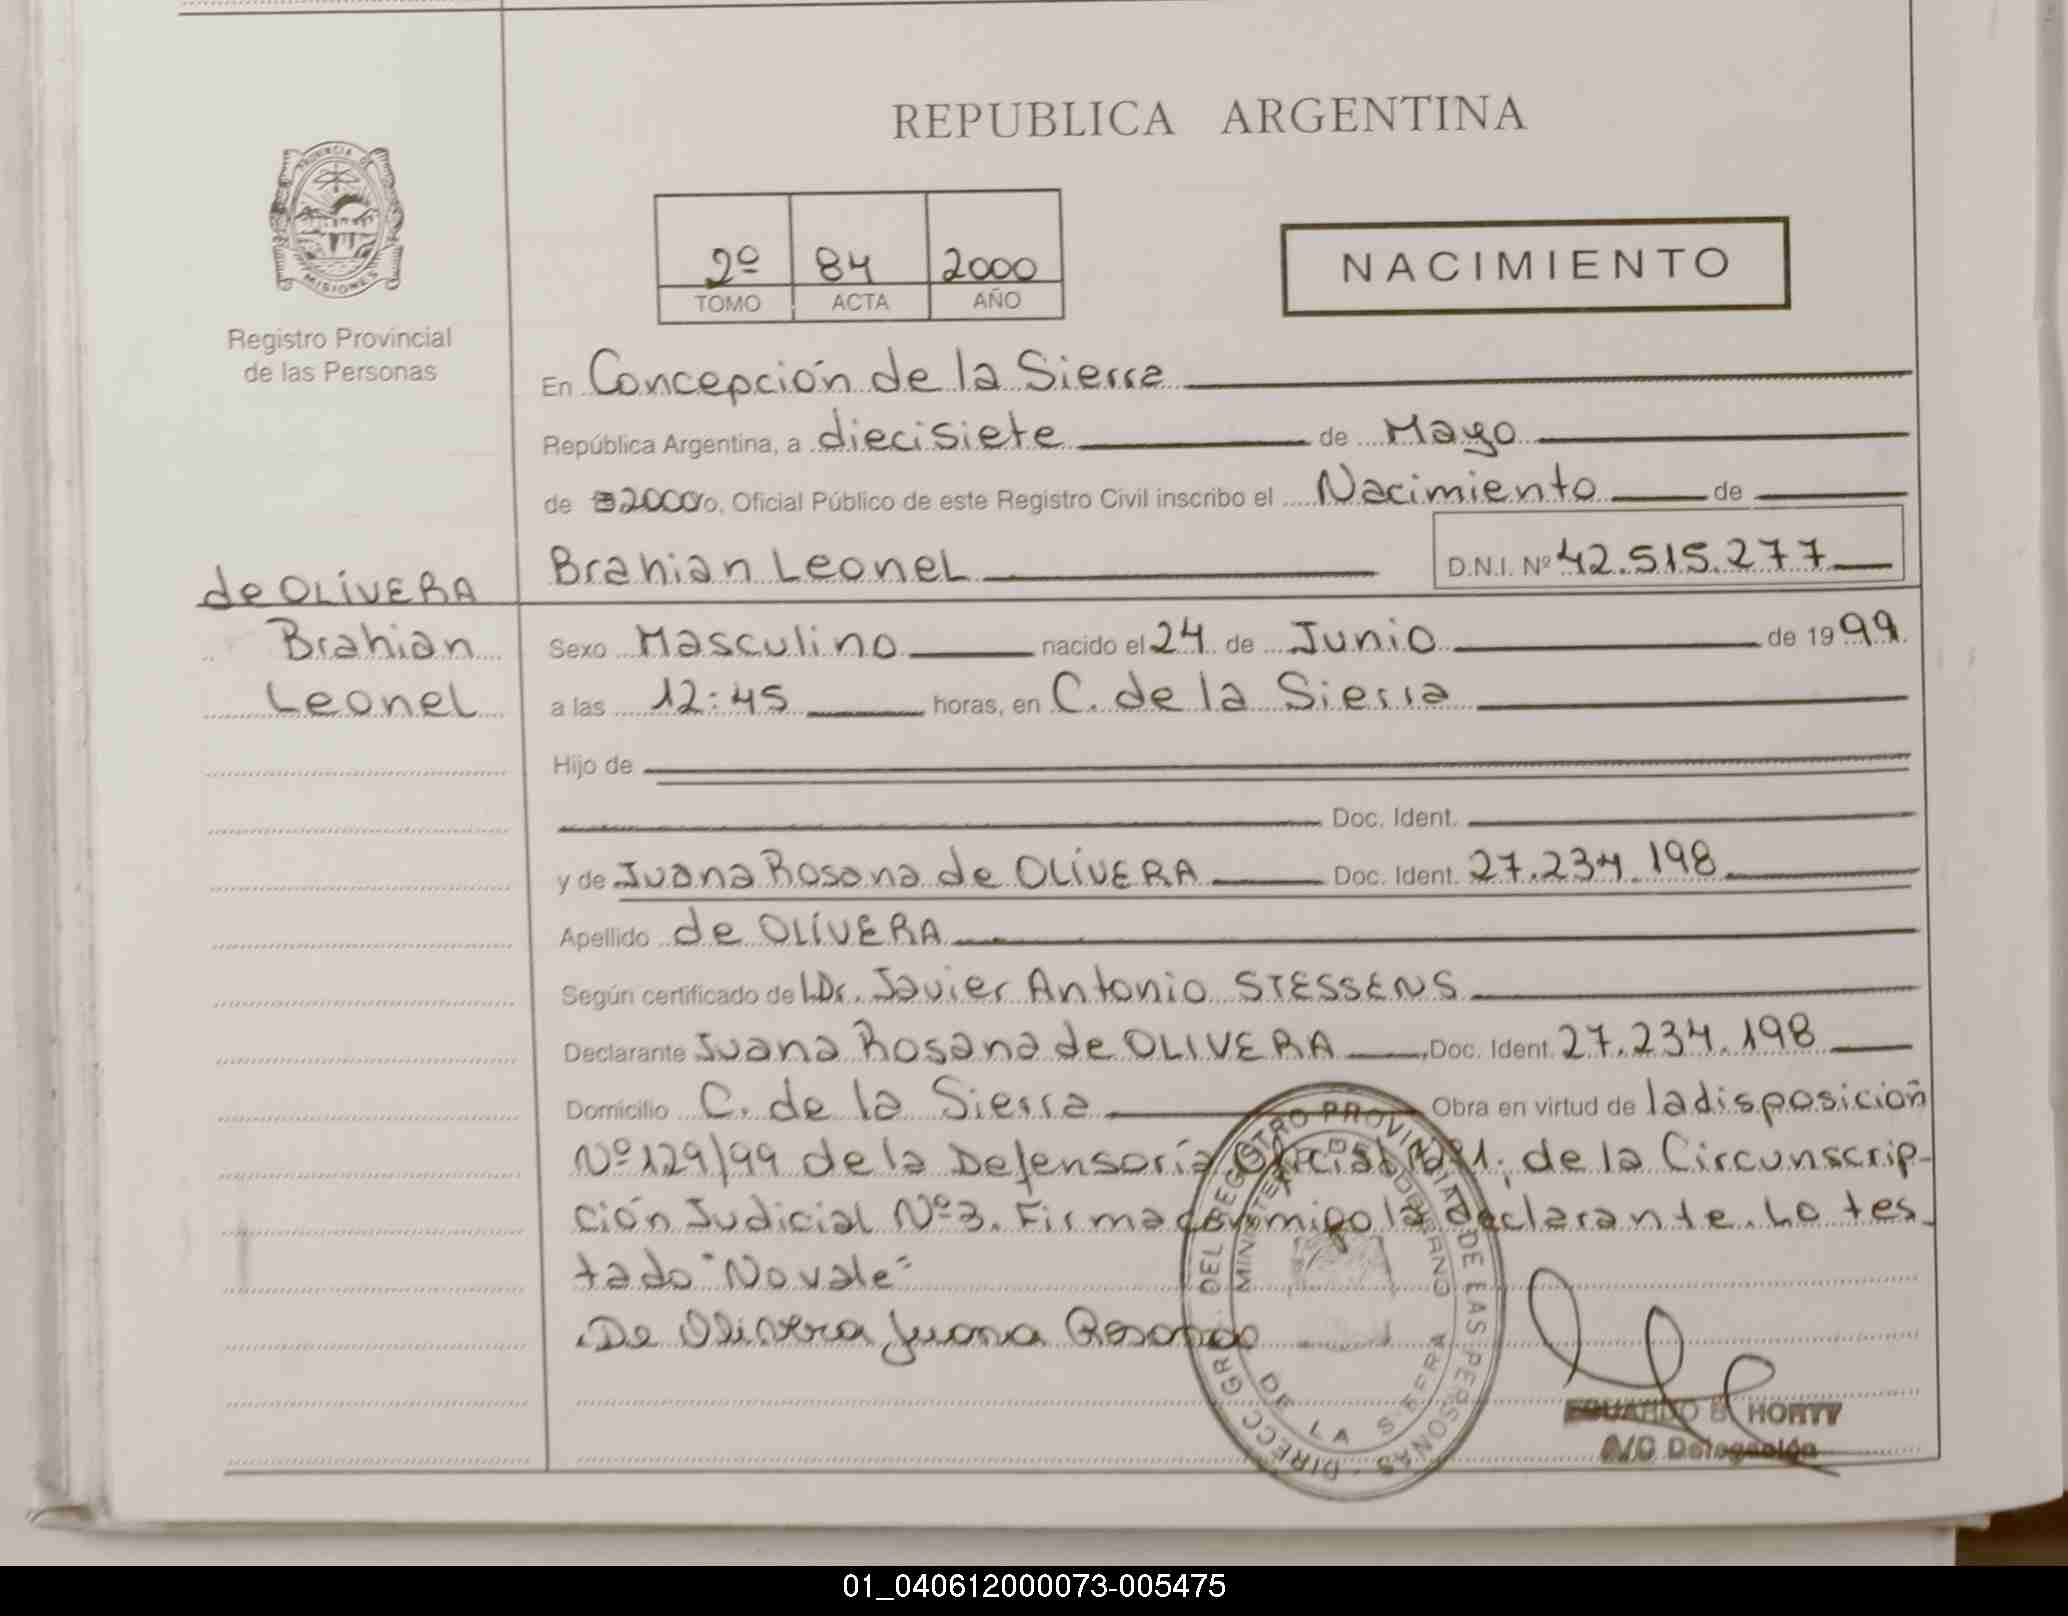 REPUBLICA ARGENTINA
PROVINCIA DE MISIONES
Registro Provincial
de las Personas
2º 84 2000
TOMO ACTA AÑO
NACIMIENTO
En Concepción de la Sierra
República Argentina, a diecisiete de Mayo
de 2000, Oficial Público de este Registro Civil inscribo el Nacimiento de
de OLIVERA
Brahian
Leonel
Brahian Leonel D.N.I. Nº 42.515.277
Sexo Masculino nacido el 24 de Junio de 1999
a las 12:45 horas, en C. de la Sierra
Hijo de
Doc. Ident.
y de Juana Rosana de OLIVERA Doc. Ident. 27.234.198
Apellido de OLIVERA
Según certificado de l Dr. Javier Antonio STESSENS
Declarante Juana Rosana de OLIVERA Doc. Ident. 27.234.198
Domicilio C. de la Sierra Obra en virtud de la disposición
Nº 129/99 de la Defensoría Oficial Nº 1, de la Circunscrip-
ción Judicial Nº 3. Firma conmigo la declarante. Lo tes-
tado "No vale"
De Olivera Juana Rosana
DIRECC. GRAL. DEL REGISTRO PROVINCIAL DE LAS PERSONAS
MINISTERIO DE GOBIERNO
DE LA SIERRA
EDUARDO HORTY
A/C Delegación
01_040612000073-005475